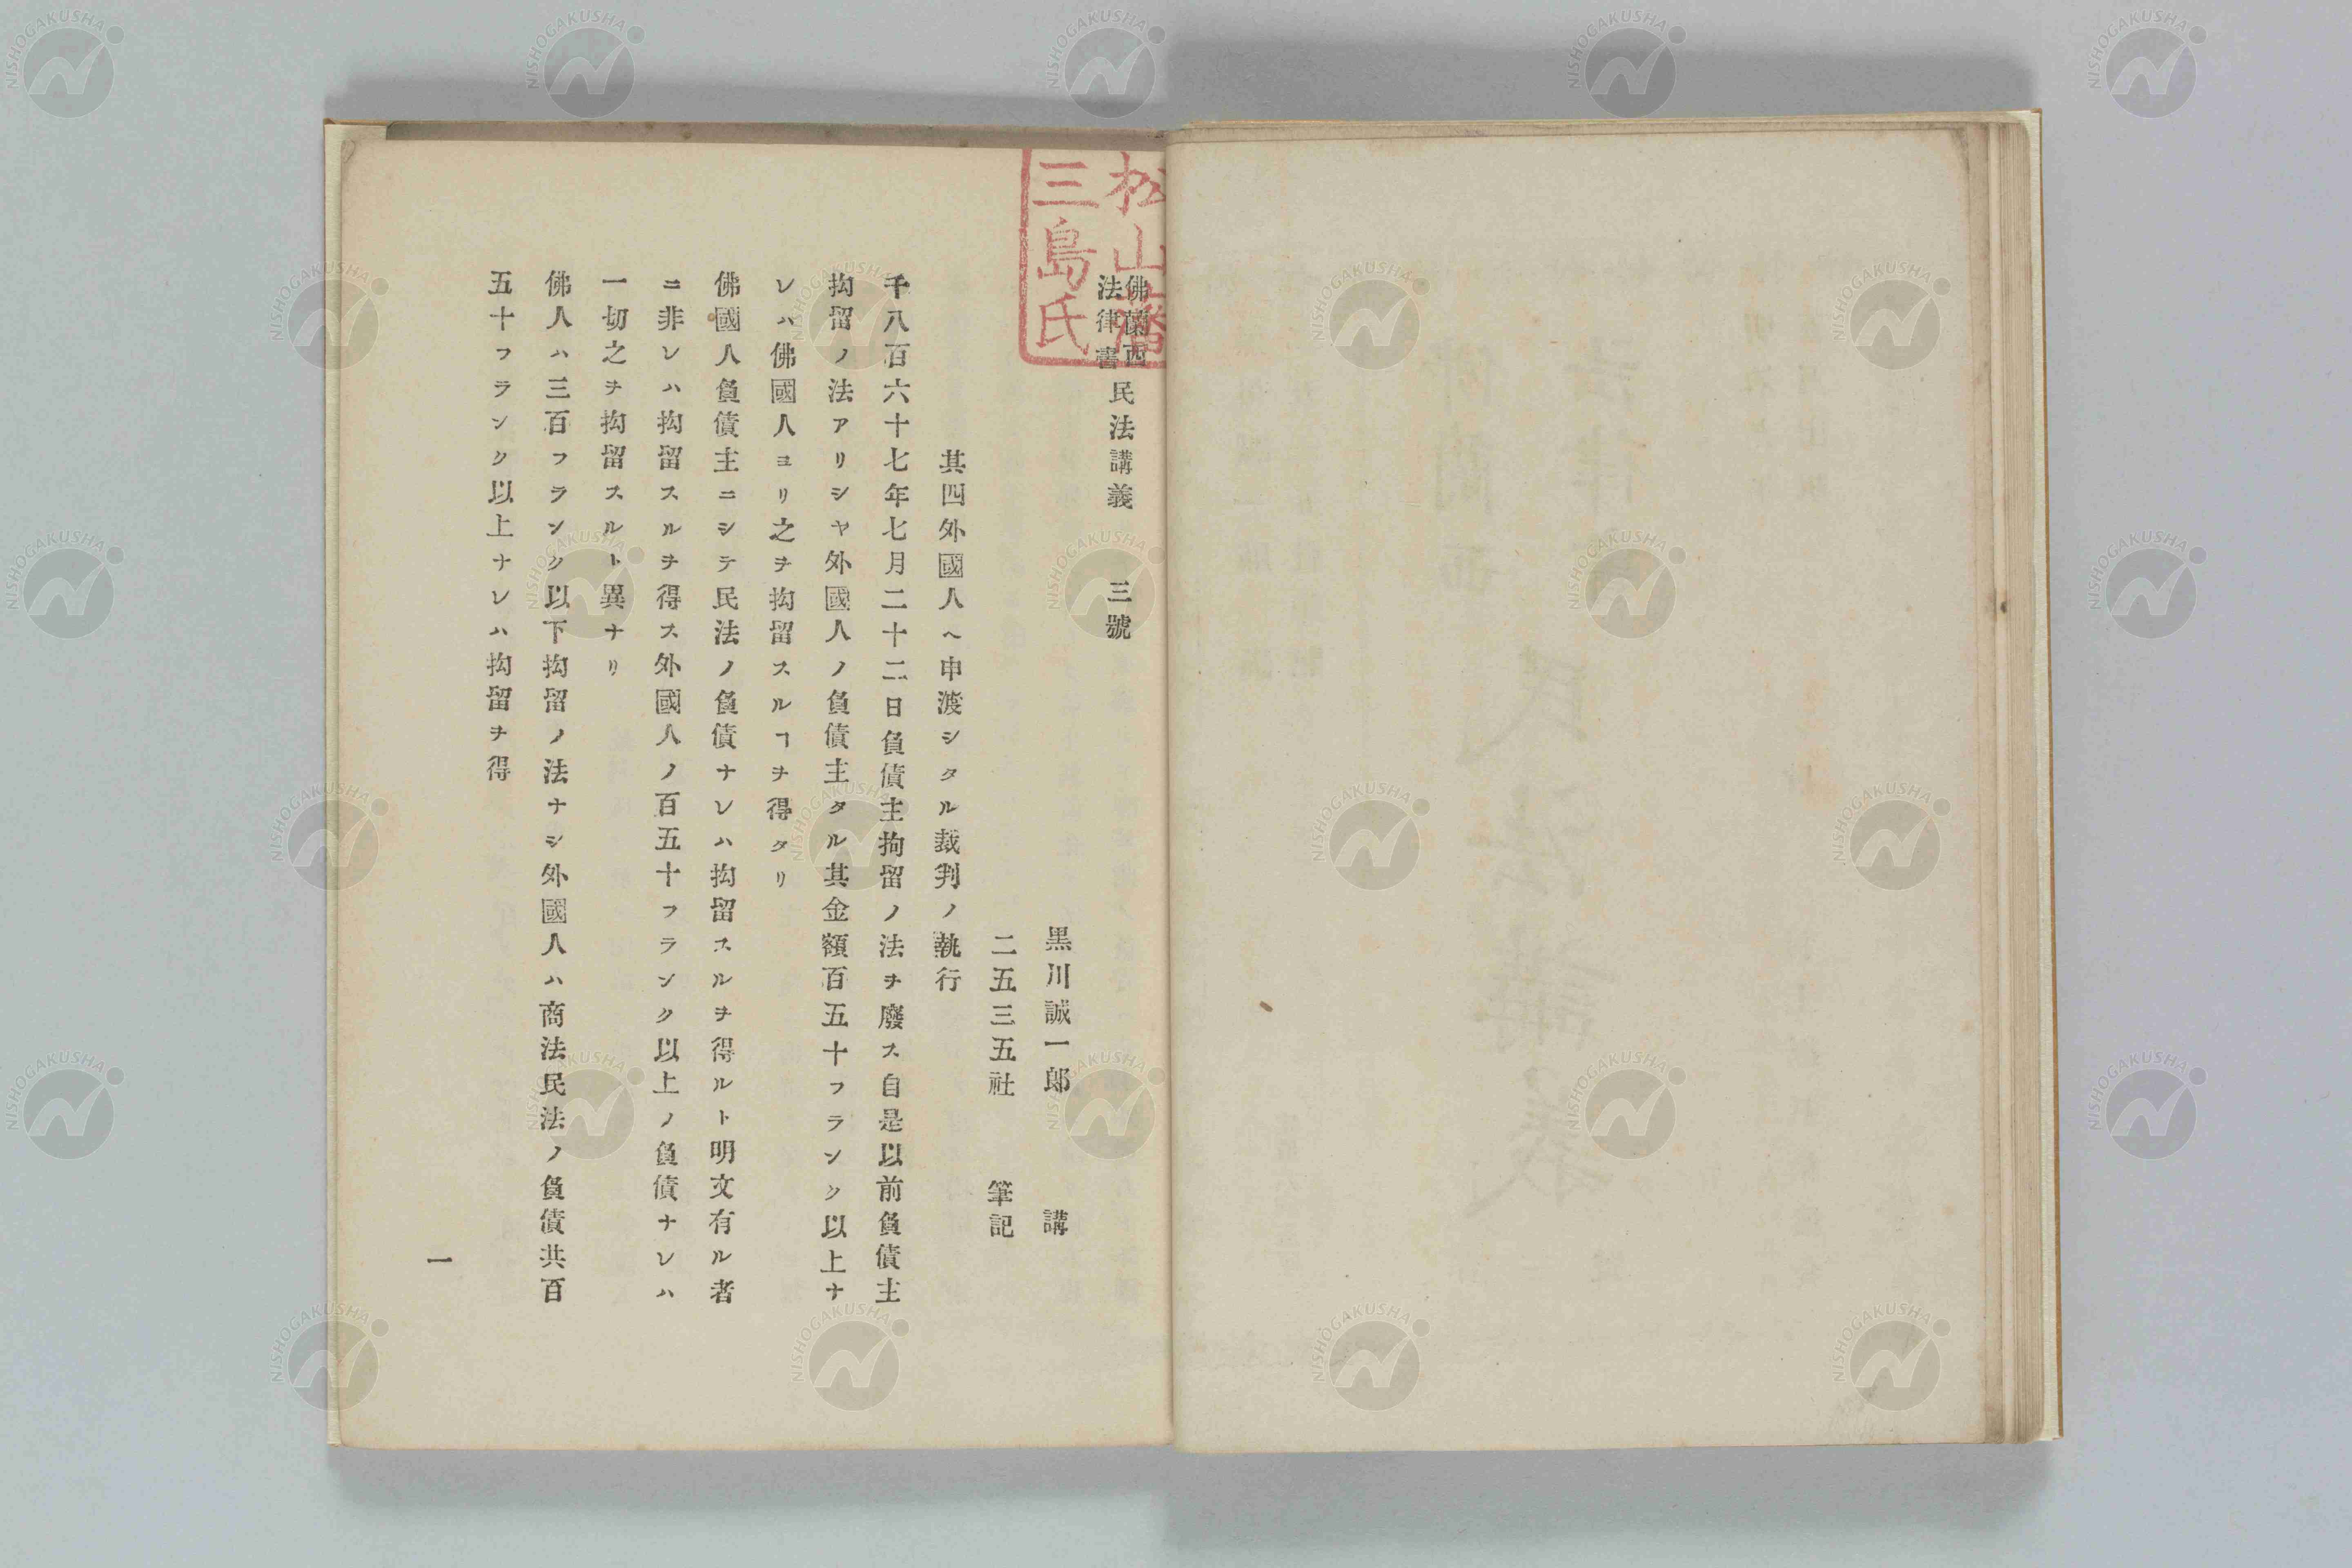 佛蘭西法律書民法講義 三號
黒川誠一郎 講
二五三五社 筆記
其四外國人ヘ申渡シタル裁判ノ執行
千八百六十七年七月二十二日負債主拘留ノ法ヲ廢ス自是以前負債主
拘留ノ法アリシヤ外國人ノ負債主タル其金額百五十フランク以上ナ
レハ佛國人ヨリ之ヲ拘留スルヿヲ得タリ
佛國人負債主ニシテ民法ノ負債ナレハ拘留スルヲ得ルト明文有ル者
ニ非レハ拘留スルヲ得ス外國人ノ百五十フランク以上ノ負債ナレハ
一切之ヲ拘留スルト異ナリ
佛人ハ三百フランク以下拘留ノ法ナシ外國人ハ商法民法ノ負債共百
五十フランク以上ナレハ拘留ヲ得
一
松山藩
三島氏
NISHOGAKUSHA